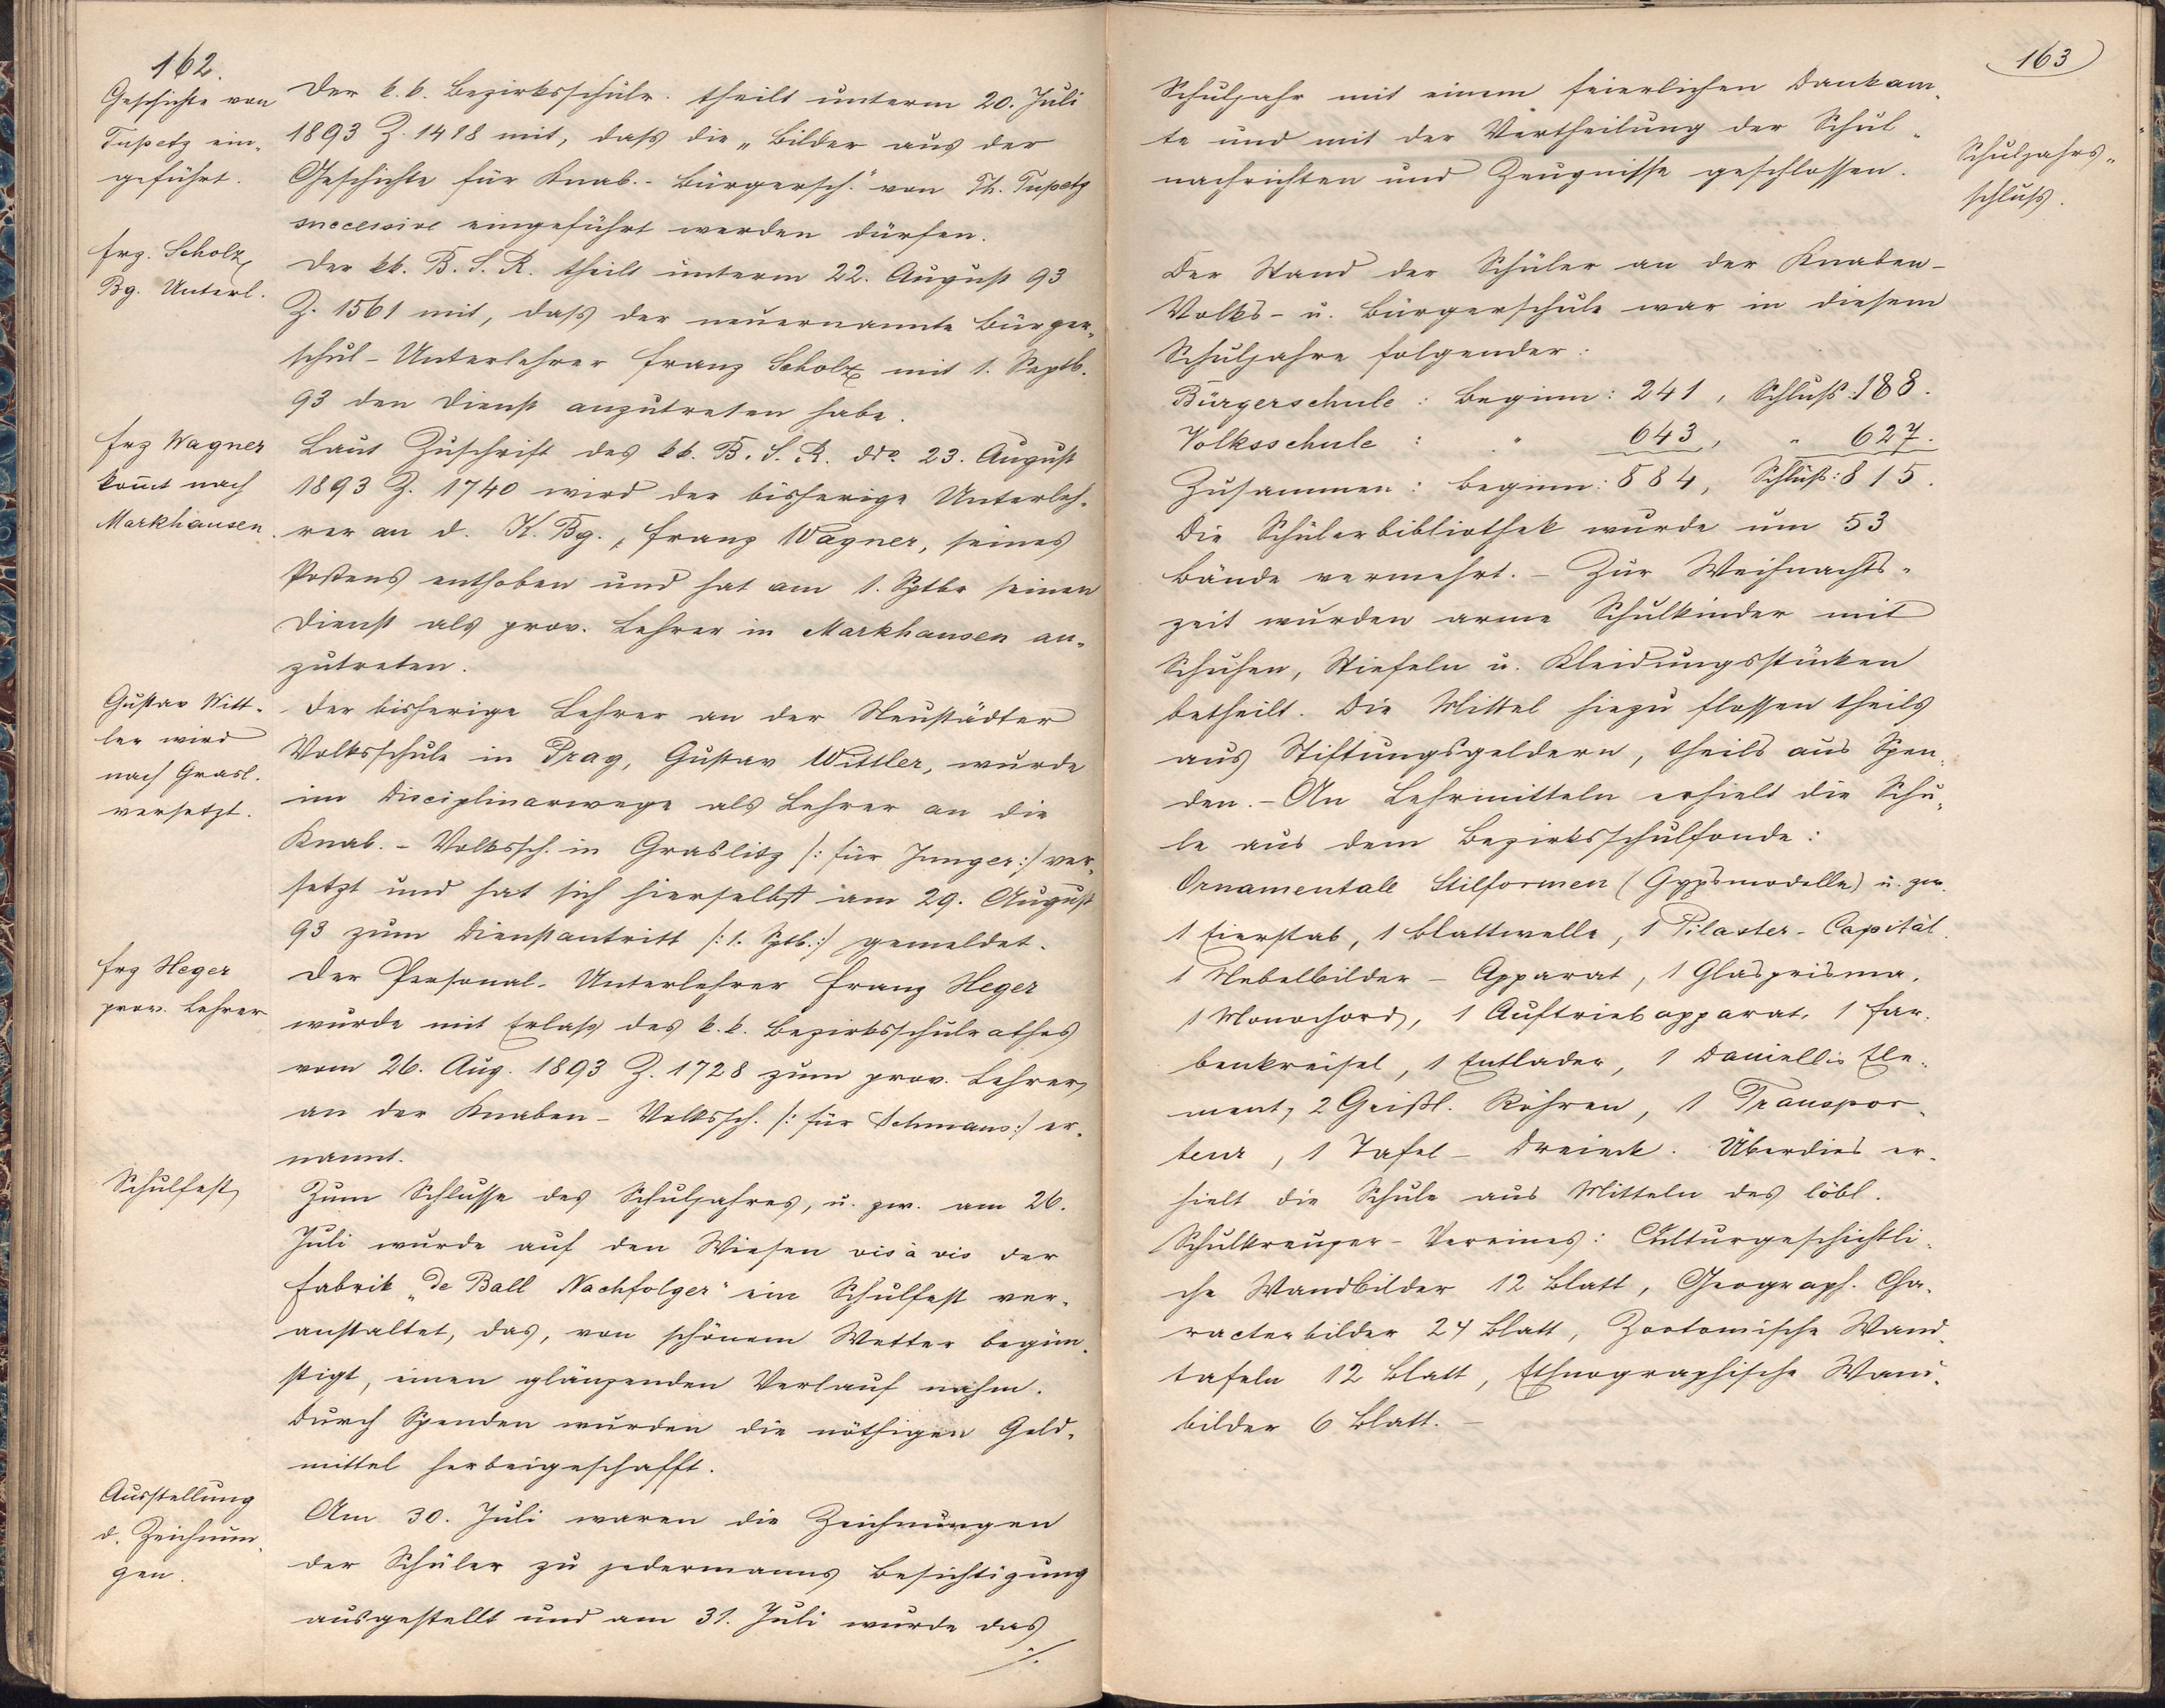 162.
Geschichte von
Tupetz ein-
geführt.
Der k. k. Bezirksschulr. theilt unterm 20. Juli
1893 Z. 1418 mit, daß die „Bilder aus der
Geschichte für Knab.- Bürgersch." von Th. Tupetz
successive eingeführt werden dürfen.
Frz. Scholz
Bg. Unterl.
Der kk. B. S. R. theilt unterm 22. August 93
Z. 1561 mit, daß der neuernannte Bürger-
schul-Unterlehrer Franz Scholz mit 1. Septb.
93 den Dienst anzutreten habe.
Frz Wagner
kom̄t nach
Markhausen.
Laut Zuschrift des kk. B. S. R. ddo. 23. August
1893 Z. 1740 wird der bisherige Unterleh-
rer an d. K. Bg., Franz Wagner, seines
Postens enthoben und hat am 1. Sptbr seinen
Dienst als prov. Lehrer in Markhausen an-
zutreten.
Gustav Witt-
ler wird
nach Grasl.
versetzt.
Der bisherige Lehrer an der Neustädter
Volksschule in Prag, Gustav Wittler, wurde
im Disciplinarwege als Lehrer an die
Knab.- Volkssch. in Graslitz /: für Junger:/ ver-
setzt und hat sich hierselbst am 29. August
93 zum Dienstantritt /: 1. Sptb.:/ gemeldet.
Frz Heger
prov. Lehrer
Der Personal-Unterlehrer Franz Heger
wurde mit Erlass des k. k. Bezirksschulrathes
vom 26. Aug. 1893 Z. 1728 zum prov. Lehrer
an der Knaben-Volkssch. /: für Schmaus:/ er-
nannt.
Schulfest
Zum Schlusse des Schuljahres, u. zw. am 26.
Juli wurde auf den Wiesen vis à vis der
Fabrik „de Ball Nachfolger" ein Schulfest ver-
anstaltet, das, von schönem Wetter begün-
stigt, einen glänzenden Verlauf nahm.
Durch Spenden wurden die nöthigen Geld-
mittel herbeigeschafft.
Ausstellung
d. Zeichnun-
gen.
Am 30. Juli waren die Zeichnungen
der Schüler zu jedermanns Besichtigung
ausgestellt und am 31. Juli wurde das
./.
163
Schuljahr mit einem feierlichen Dankam-
te und mit der Vertheilung der Schul-
nachrichten und Zeugnisse geschlossen.
Schuljahrs-
schluß.
Der Stand der Schüler an der Knaben-
Volks- u. Bürgerschule war in diesem
Schuljahre folgender:
Bürgerschule: Beginn: 241, Schluß: 188.
Volksschule: " 643, " 627.
Zusammen: Beginn: 884, Schluß: 815.
Die Schülerbibliothek wurde um 53
Bände vermehrt. – Zur Weihnachts-
zeit wurden arme Schulkinder mit
Schuhen, Stiefeln u. Kleidungsstücken
betheilt. Die Mittel hiezu flossen theils
aus Stiftungsgeldern, theils aus Spen-
den. – An Lehrmitteln erhielt die Schu-
le aus dem Bezirksschulfonde:
Ornamentale Stilformen (Gypsmodelle) u. zw.
1 Eierstab, 1 Blattwelle, 1 Pilaster-Capitäl.
1 Nebelbilder-Apparat, 1 Glasprisma,
1 Monochord, 1 Auftriebapparat, 1 Far-
benkreisel, 1 Entlader, 1 Daniellis Ele-
ment, 2 Geißl. Röhren, 1 Transpor-
teur, 1 Tafel-Dreieck. Überdies er-
hielt die Schule aus Mitteln des löbl.
Schulkreuzer-Vereines: Culturgeschichtli-
che Wandbilder 12 Blatt, Geograph. Cha-
racterbilder 24 Blatt, Zootomische Wand-
tafeln 12 Blatt, Ethnographische Wand-
bilder 6 Blatt. –